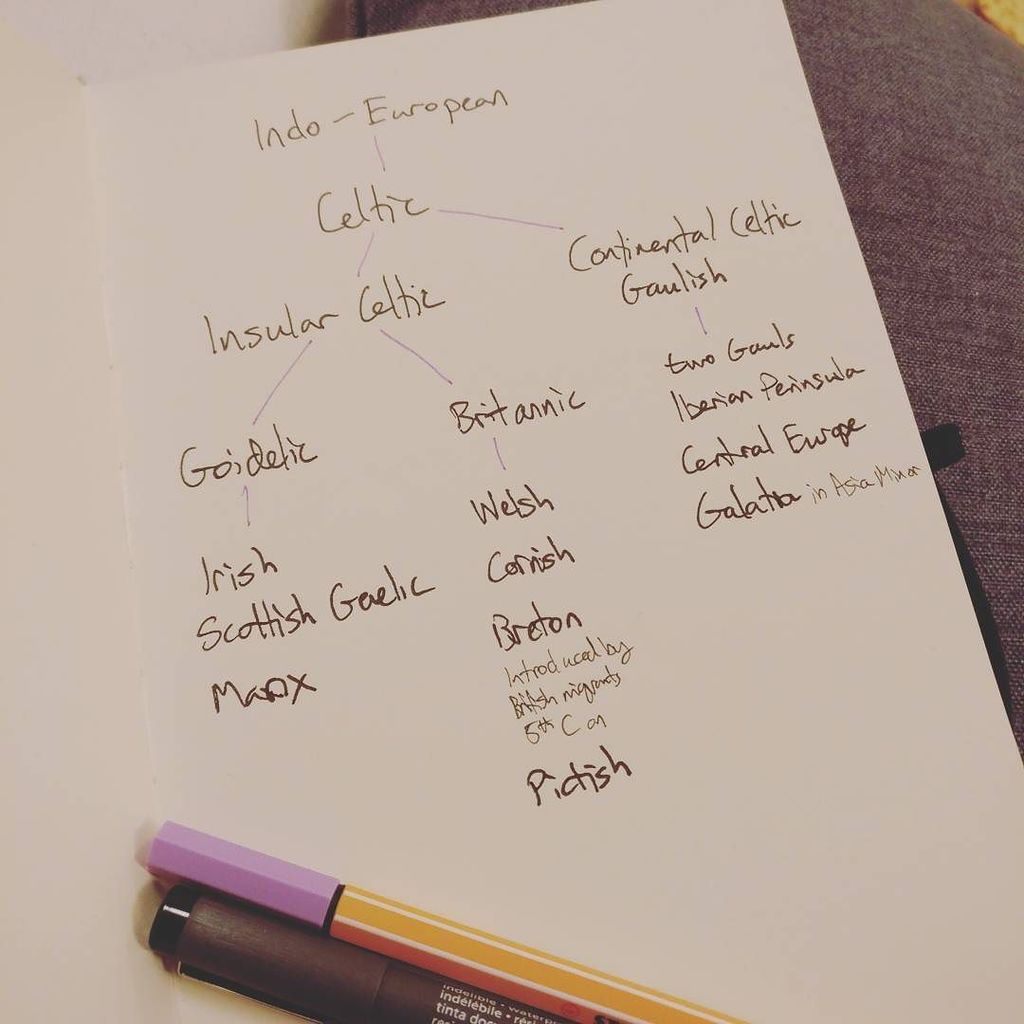 Indo-European
Celtic
Continental Celtic
Gaulish
Insular Celtic
two Gauls
Iberian Peninsula
Central Europe
Galatia in Asia Minor
Goidelic
Britannic
Irish
Scottish Gaelic
Manx
Welsh
Cornish
Breton
Introduced by
British migrants
5th C on
Pictish
indelible • waterpr
indélébile • rési
tinta doc